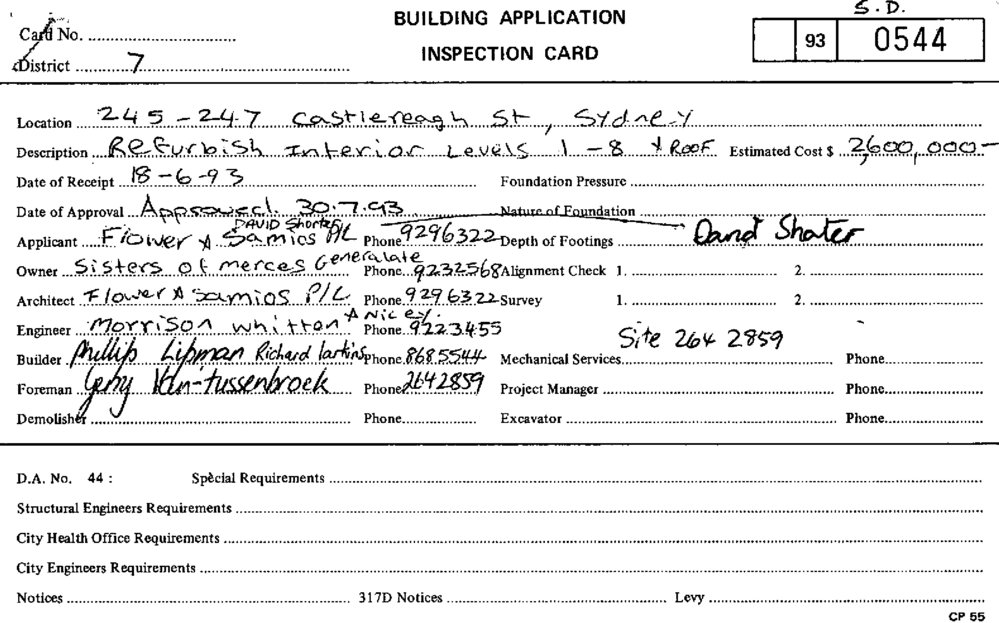 S.D.
BUILDING APPLICATION
INSPECTION CARD
93 0544
Card No.
District 7
Location 245-247 Castlereagh St, Sydney
Description Refurbish Interior Levels 1-8 & Roof Estimated Cost $ 2,600,000-
Date of Receipt 18-6-93 Foundation Pressure
Date of Approval Approved. 30.7.93 Nature of Foundation
DAVID
Applicant Flower & Samios P/L Phone 9296322 Depth of Footings David Shater
Generalate
Owner Sisters of merces Phone 9232568 Alignment Check 1. 2.
Architect Flower & Samios P/L Phone 9296322 Survey 1. 2.
Engineer Morrison whitton Phone 9223455
Site 264 2859
Builder Phillip Lipman Richard larkins Phone 8685544 Mechanical Services Phone
Foreman Gerry Van-tussenbroek Phone 2642859 Project Manager Phone
Demolisher Phone Excavator Phone
D.A. No. 44 : Special Requirements
Structural Engineers Requirements
City Health Office Requirements
City Engineers Requirements
Notices 317D Notices Levy
CP 55